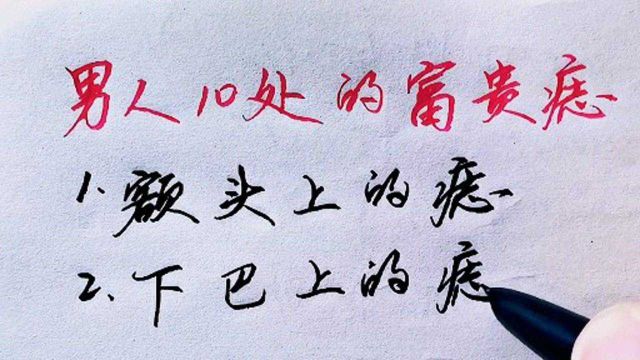 男人10处的富贵痣
1.额头上的痣
2.下巴上的痣